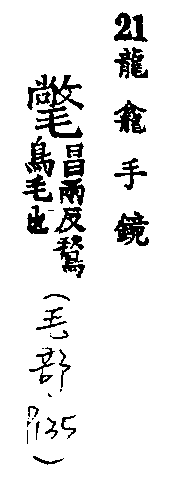 21龍龕手鏡
氅
昌兩反鶖
鳥毛也
(毛部.P135)